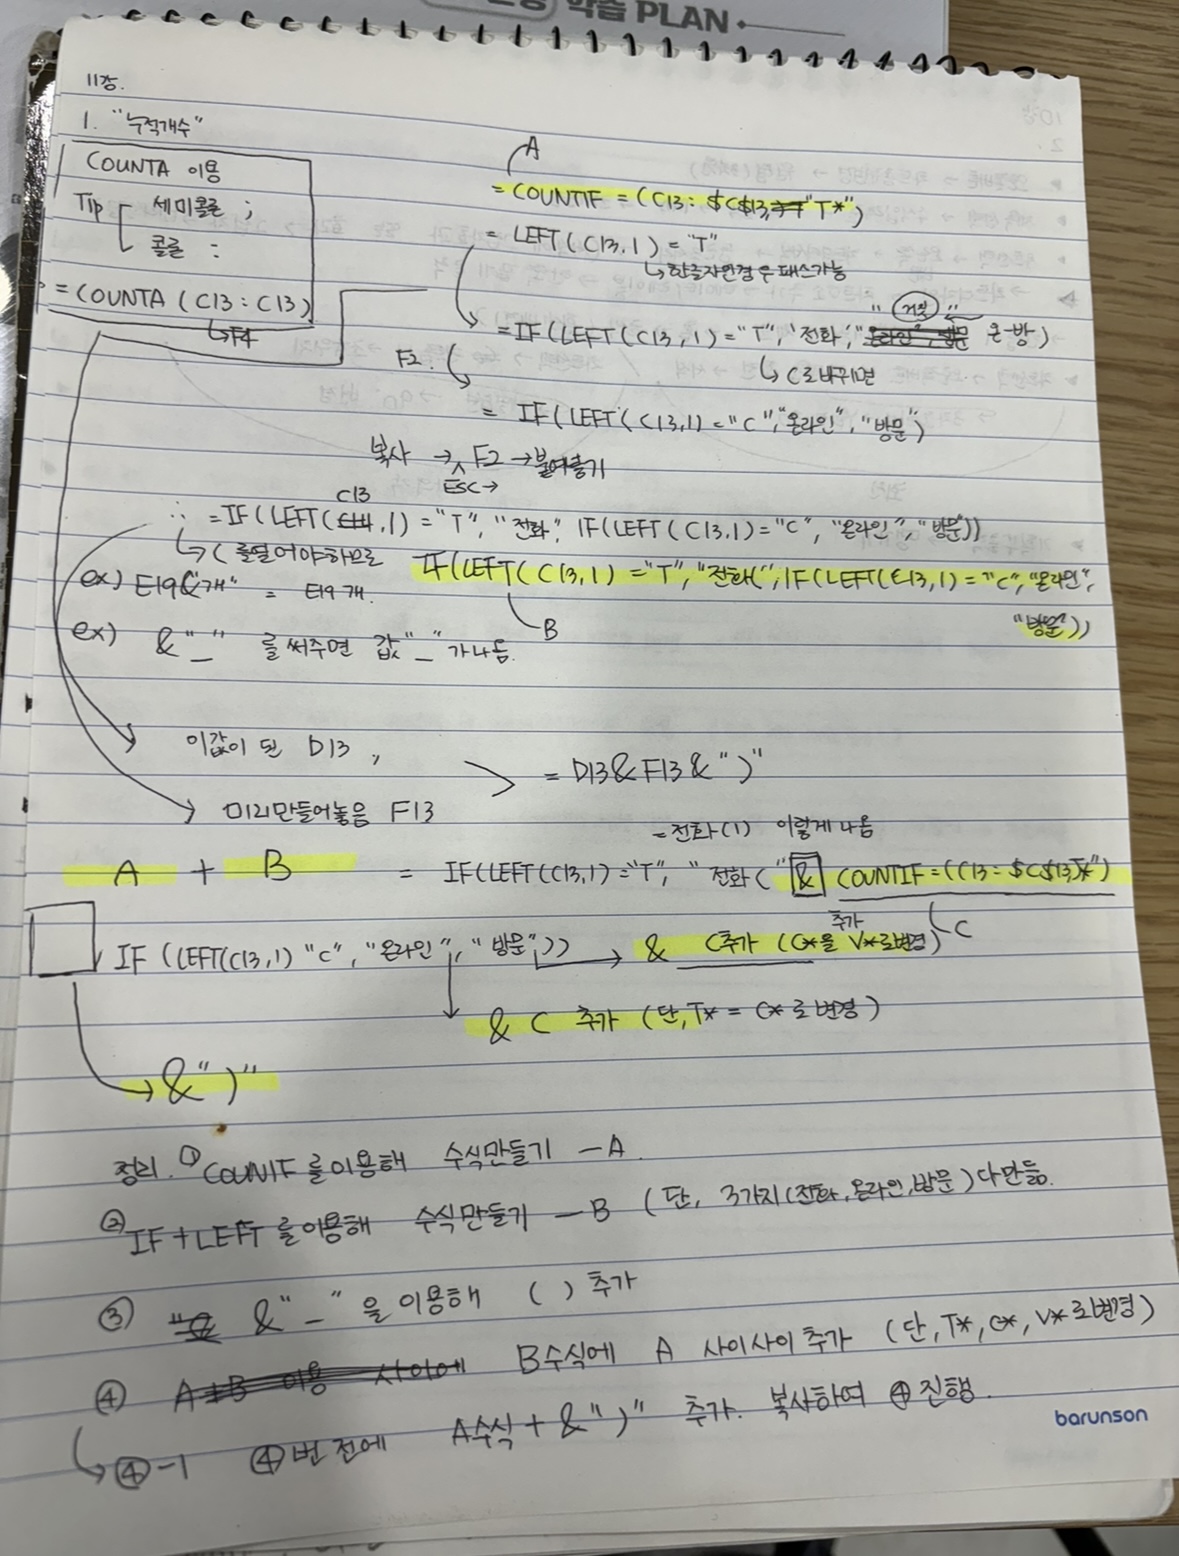 학습 PLAN
11강.
1. "누적개수"
COUNTA 이용
Tip 세미콜론 ;
콜론 :
= COUNTA (C13 : C13)
↳F4
A
= COUNTIF = (C13 : $C$13, "T*")
= LEFT (C13, 1) = "T"
↳한글자인경우 패스가능
"거짓"
= IF (LEFT (C13, 1) = "T", "전화", 온-방)
↳ C로바꾸면
F2.
= IF (LEFT (C13, 1) = "C", "온라인", "방문")
복사 → F2 → 붙여넣기
ESC →
C13
∴ = IF (LEFT (, 1) = "T", "전화", IF (LEFT (C13, 1) = "C", "온라인", "방문"))
↳ ( 를열어야하므로 IF (LEFT (C13, 1) = "T", "전화(", IF (LEFT (C13, 1) = "C", "온라인",
"방문"))
B
ex) E19&"개" = E19개.
ex) & "_" 를 써주면 값"_"가나듬.
이값이 된 D13,
= D13&F13&")"
미리만들어놓음 F13
= 전화(1) 이렇게 나옴
A + B = IF (LEFT (C13, 1) = "T", "전화(" & COUNTIF = ((C13 : $C$13,T*")
C
IF (LEFT(C13, 1) "C", "온라인", "방문")) → & C추가 (C*을 V*로변경)
추가
& C 추가 (단, T* = C* 로 변경)
→ & ")"
정리. ① COUNTIF 를이용해 수식만들기 — A.
② IF + LEFT 를이용해 수식만들기 — B (단, 3가지(전화, 온라인, 방문) 다만듦.
③ & "_" 을 이용해 ( ) 추가
④ B수식에 A 사이사이 추가 (단, T*, C*, V* 로변경)
↳ ④-1 ④번 전에 A수식 + & ")" 추가. 복사하여 ④ 진행.
barunson